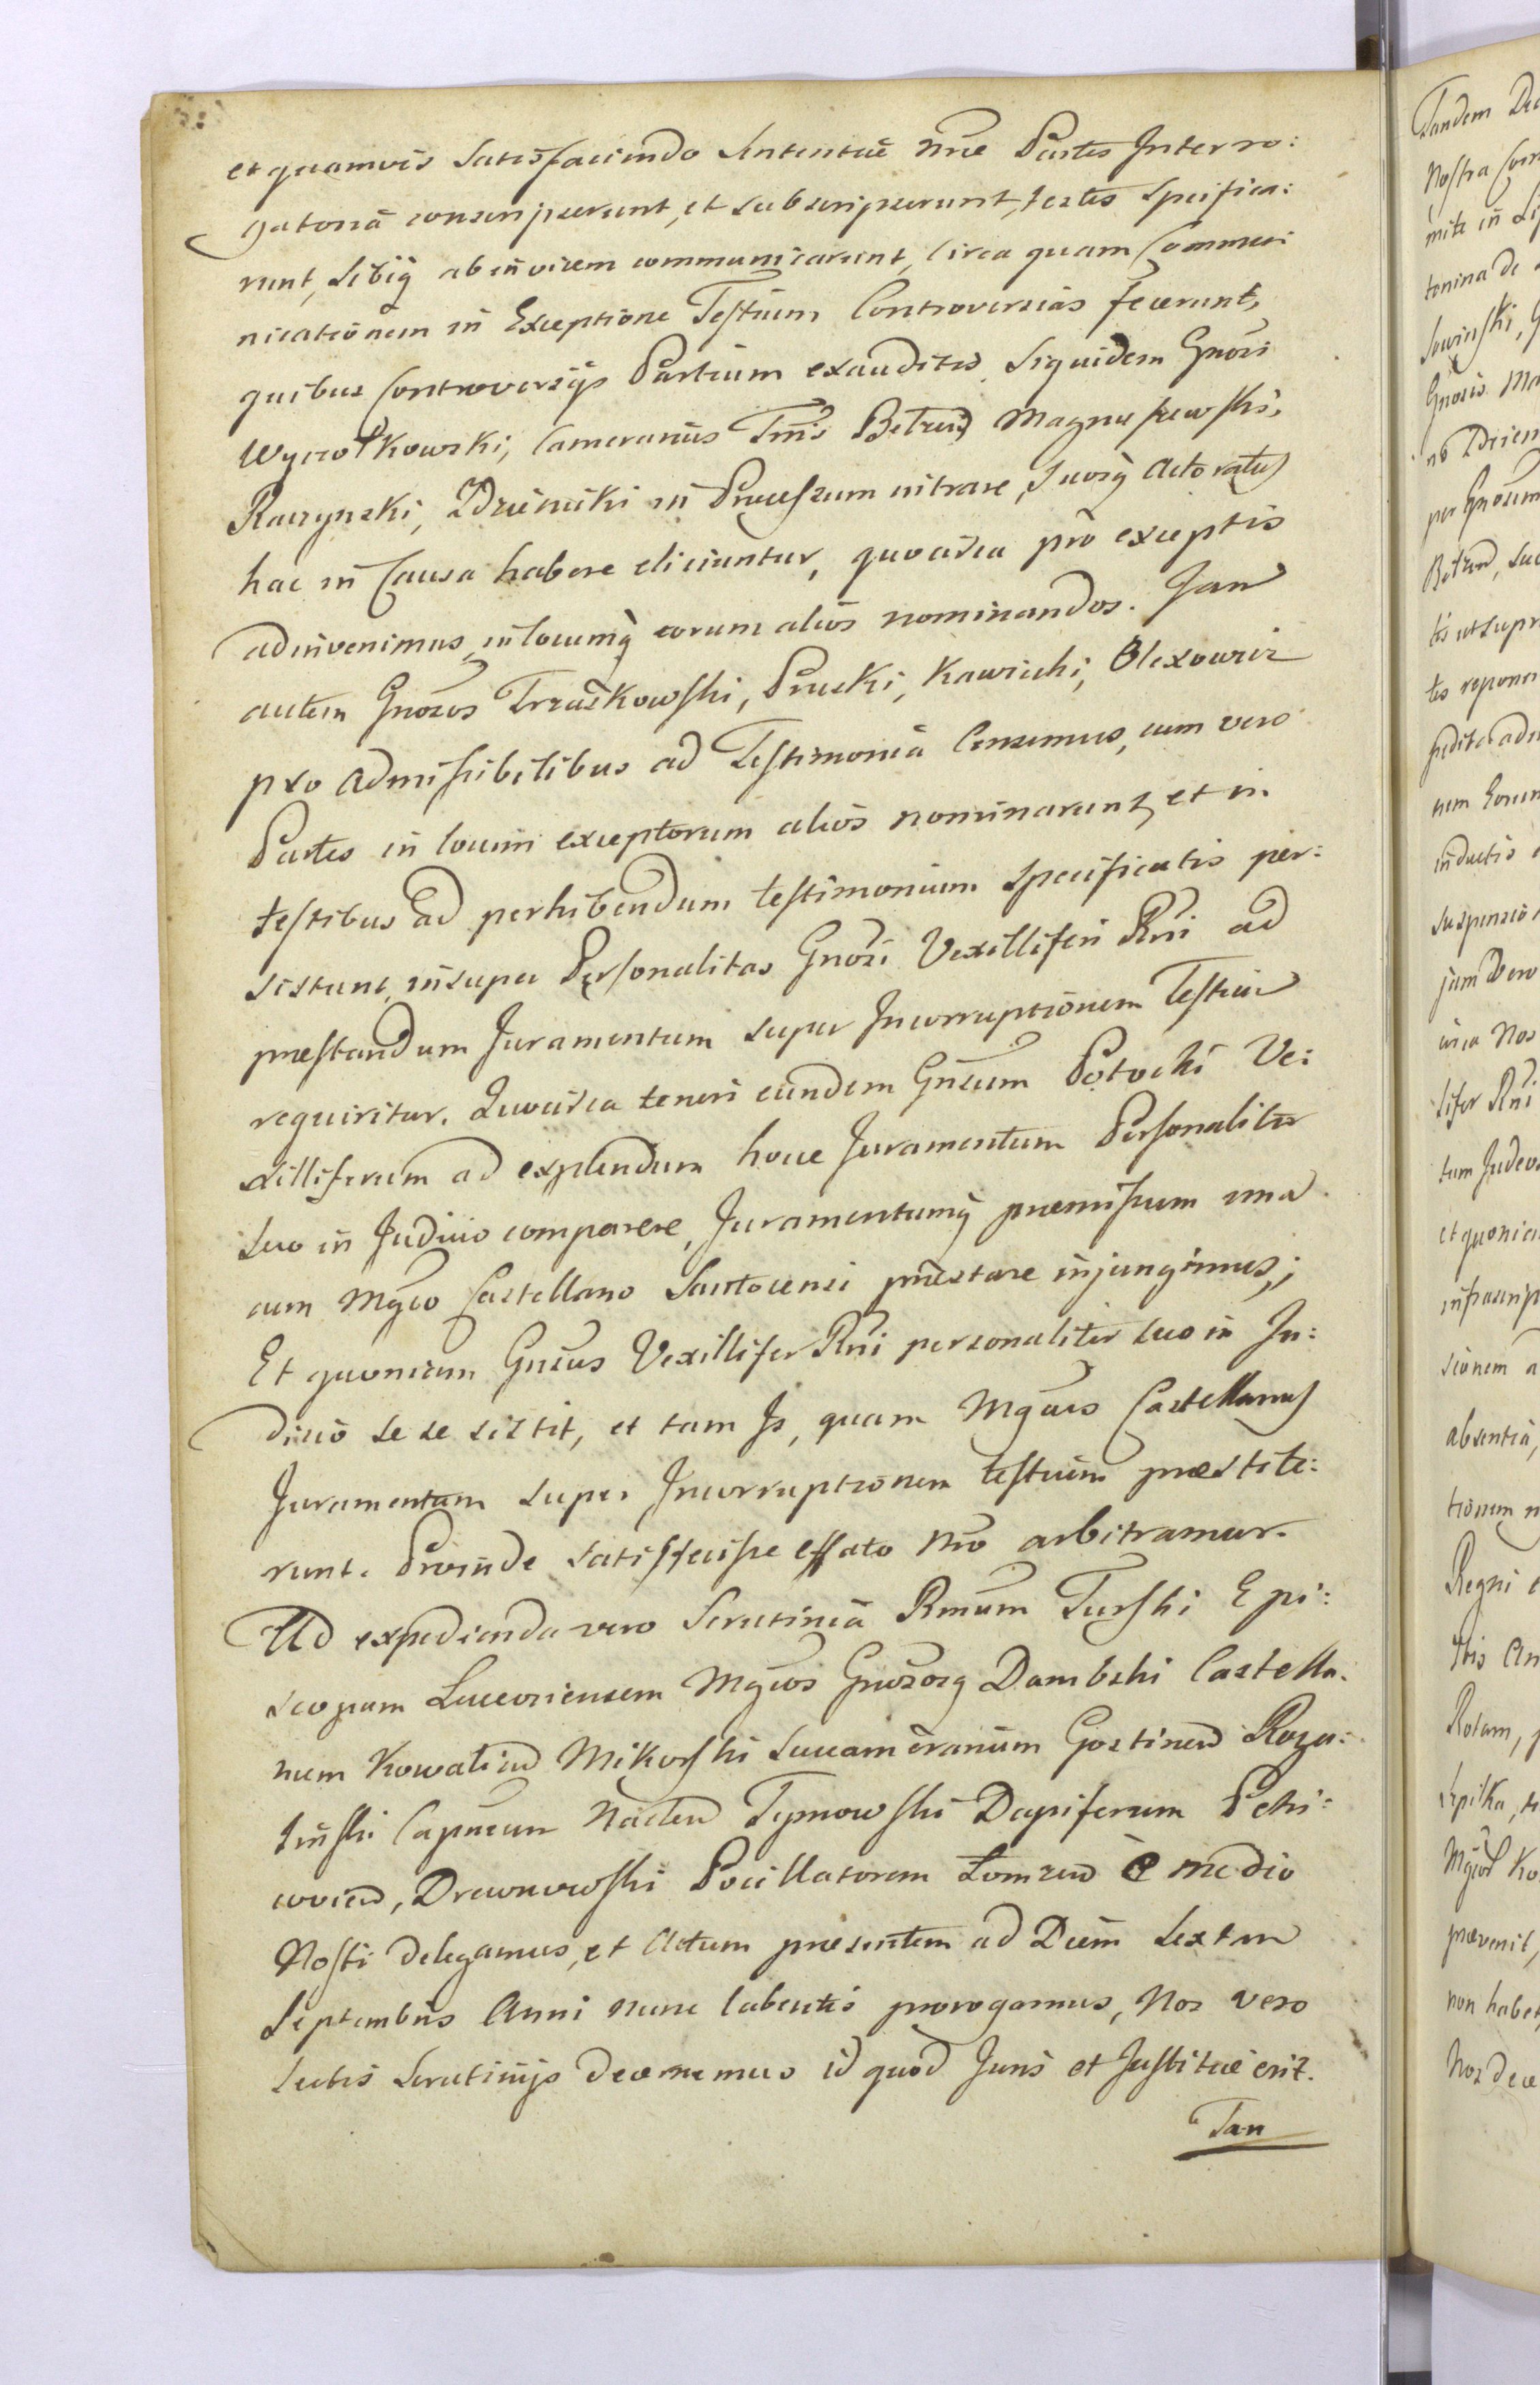 et quamvis Satisfaciendo Sententiæ nræ Partes Interro:
gatoria conscripserunt, et subscripserunt, testes Specifica:
runt, Sibiq ab invicem communicarunt, Circa quam Commu
nicationem in Exceptione Testium Controversias fecerunt,
quibus Controversijs Partium exauditis. Siquidem Gnosi
Wyczołkowski, Camerarius Trris Belzen Magnuszewski,
Raczynski, Zdzienicki in Processum intrare, Suosq Actoratus
hac in Causa habere eliciuntur, quocirca pro exceptis
adinvenimus, in locumq eorum alios nominandos. Jam
autem Gnosos Trzaskowski, Pruski, Kawiecki, Olexowicz
pro Admissibilibus ad Testimonia Censemus, cum vero
Partes in locum exceptorum alios nominarunt, et in
testibus ad perhibendum testimonium Specificatis per:
sistunt, insuper Personalitas Gnosi Vexilliferi Rni ad
præstandum Juramentum super Incorruptionem Testium
requiritur. Quocirca teneri eundem Gnsum Potocki Ve:
xilliferum ad explendum hocce Juramentum Personaliter
Suo in Judicio comparere, Juramentumq præmissum una
cum Mgco Castellano Santocensi præstare injungimus;
Et quoniam Gnsus Vexillifer Rni personaliter suo in Ju:
dicio se se sistit, et tam Is, quam Mgcus Castellanus
Juramentum super Incorruptionem testium præstite:
runt. Proinde satisfecisse effato nro arbitramur.
Ad expedienda vero Scrutinia Rmum Turski Epi:
scopum Luceoriensem Mgcos Gnososq Dambski Castella:
num Kowalien Mikorski Succamerarium Gostinen
tinski Capneum Naclen Tymowski Dapiferum Petri:
covien, Drewnowski Pocillatorem Łomzen è medio
Nostri delegamus, et Actum præsentem ad Diem Sextam
Septembris Anni nunc labentis prorogamus, Nos vero
Lectis Scrutinijs decernemus id quod Juris et Justitiæ erit.
Tan
Tandem
Nostra
tonina de
per Gnosum
tis ut supr
inductis
circa Nos
et quonia
sionem a
absentia,
tionem
Regni
Rotam,
prævenit,
non habet
Nos dece